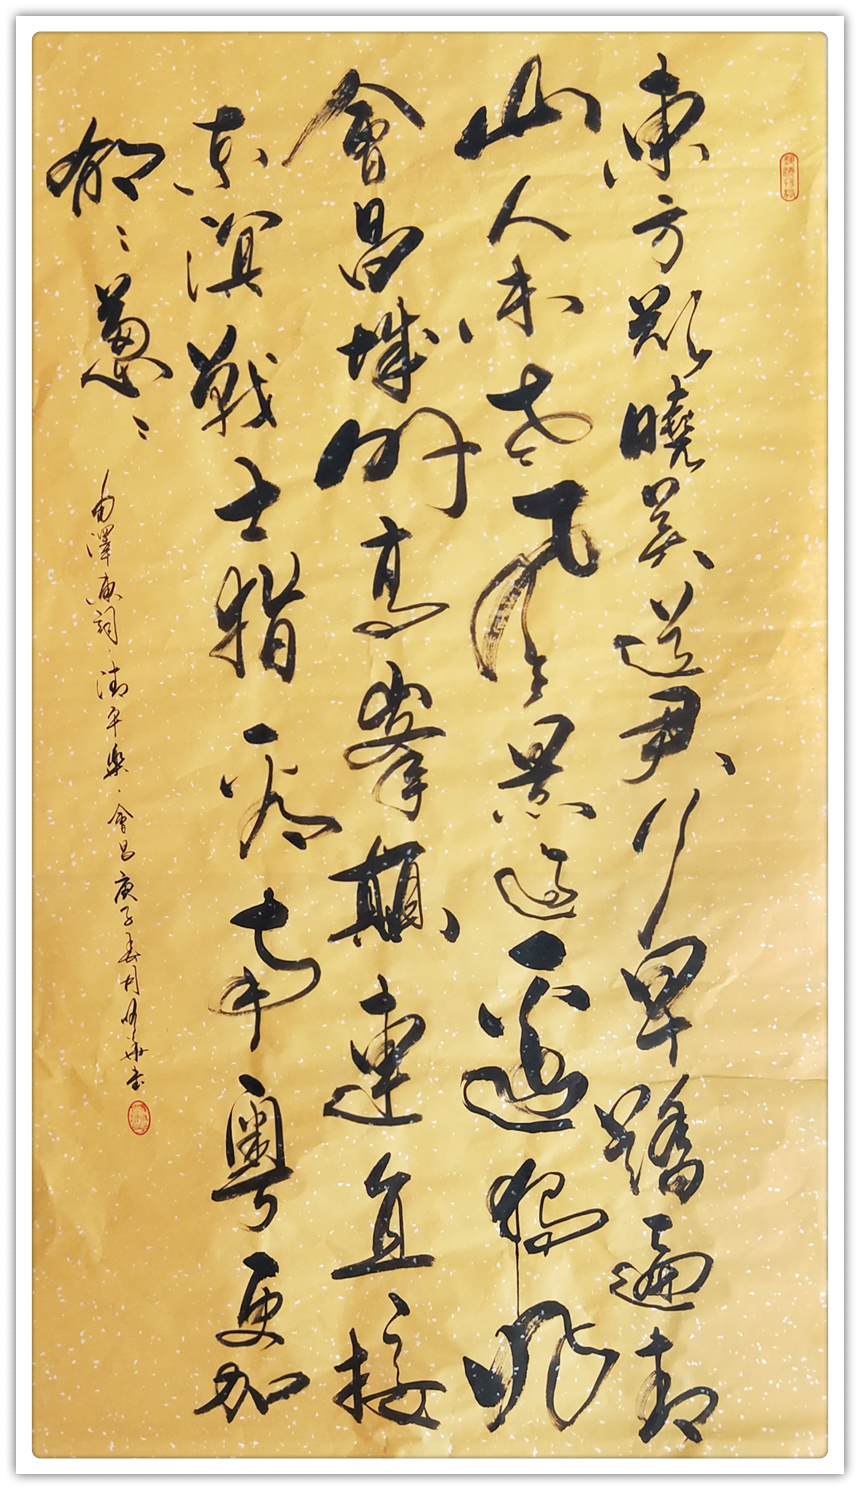 東方欲曉莫道君行早踏遍青
山人未老風景這邊獨好
會昌城外高峯顛連直接
东溟戰士指看南粵更加
鬱〻蔥〻
毛澤東詞·清平樂·會昌庚子春月華書